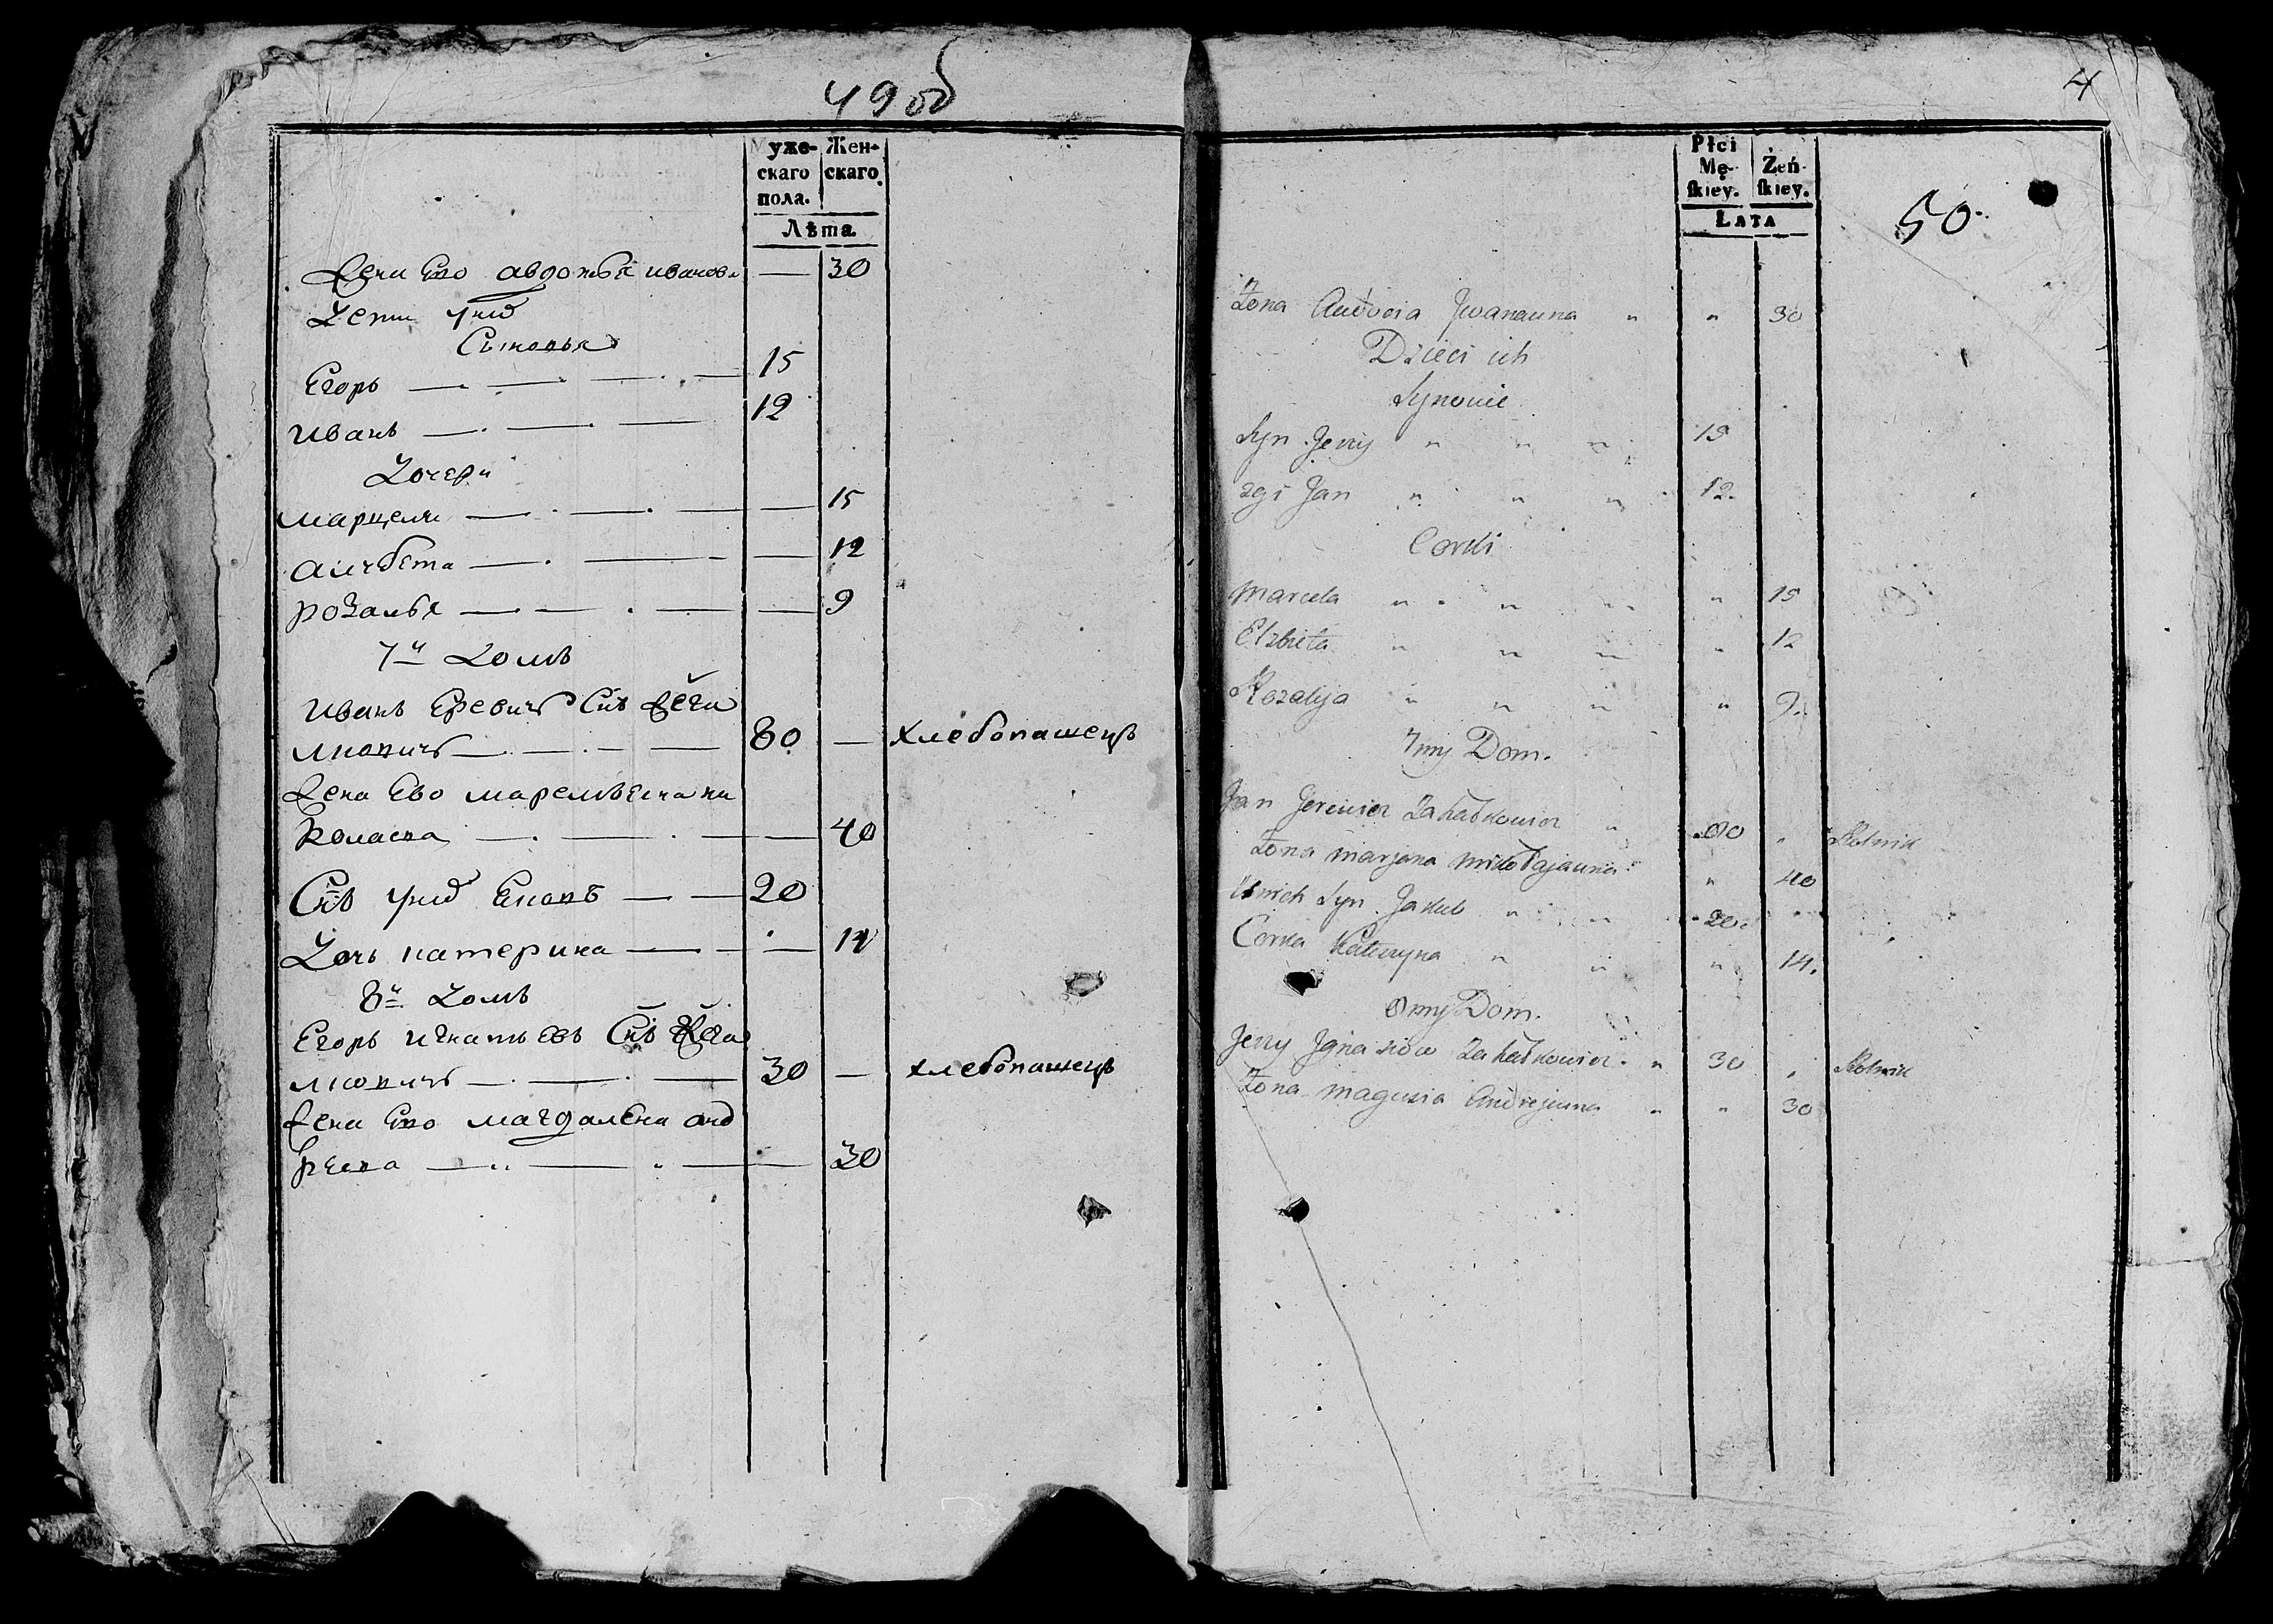 49 об
Муже-
скаго
пола.
Жен-
скаго
Лѣта
Жена Ево авдотья иванова — 30
Дети
Сыновья
Егоръ — 15
Иванъ — 12
Дочери
марцеля — 15
алчбета — 12
розалья — 9
7й Домъ
Иванъ Еревичъ Снъ
— 80 — хлебопашецъ
Жена Ево
— 40
Снъ — 20
Дочь катерина — 14
8й Домъ
Егоръ игнатьевъ Снъ
— 30 — хлебопашецъ
Жена Ево магдалена анд
рева — 30
4
50
Płci
Mę-
ſkiey.
Żeń-
ſkiey.
Łata
Żona Audocia Jwanauna " " 30
Dzieci ich
Synowie
Syn Jerzy " " " 15
2gi Jan " " " 12
Corki
Marcela " " " " 15
Elzbieta " " " " 12
Rozalija " " " " 9
7my Dom.
Jan Jerewicz " 80 " Rolnik
Żona marjana mikołajauna " 40
Unich Syn Jakub " " 20 "
Corka Kateryna " " " 14.
8my Dom.
Jerzy Jgnaciow " 30 " Rolnik
Żona magusia Andrejeuna " " 30